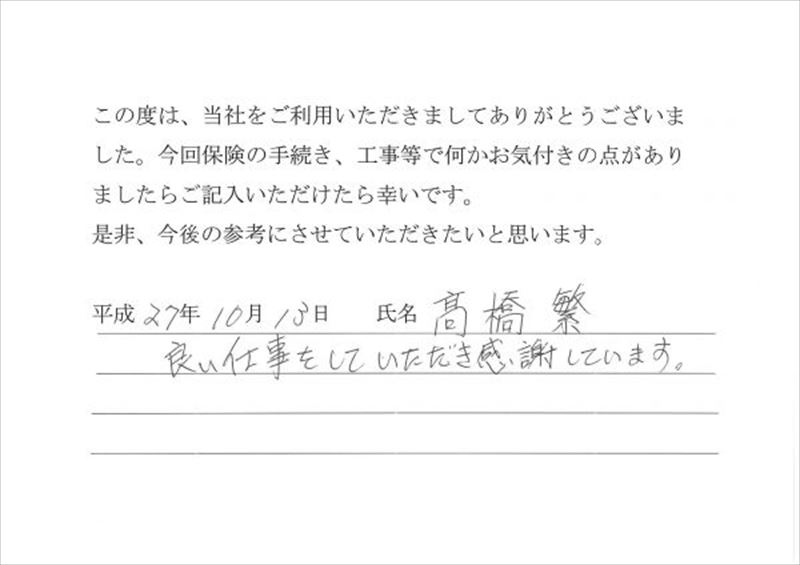 この度は、当社をご利用いただきましてありがとうございま
した。今回保険の手続き、工事等で何かお気付きの点があり
ましたらご記入いただけたら幸いです。
是非、今後の参考にさせていただきたいと思います。
平成 27年 10月 13日 氏名 髙橋 繁
良い仕事をしていただき感謝しています。